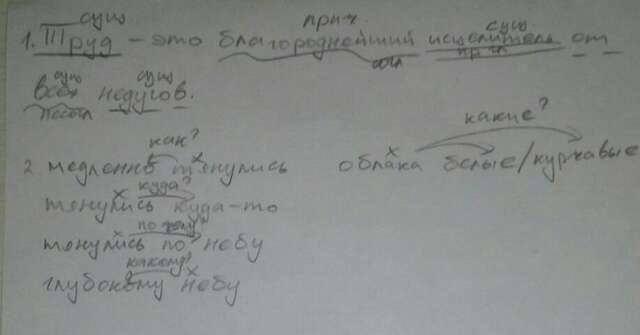 сущ прич. сущ
1. Труд – это благороднейший исцелитель от
согл прил
сущ сущ
всех недугов.
несогл
как? какие?
2 медленно тянулись облака белые/курчавые
куда?
тянулись куда-то
по чему?
тянулись по небу
какому?
глубокому небу